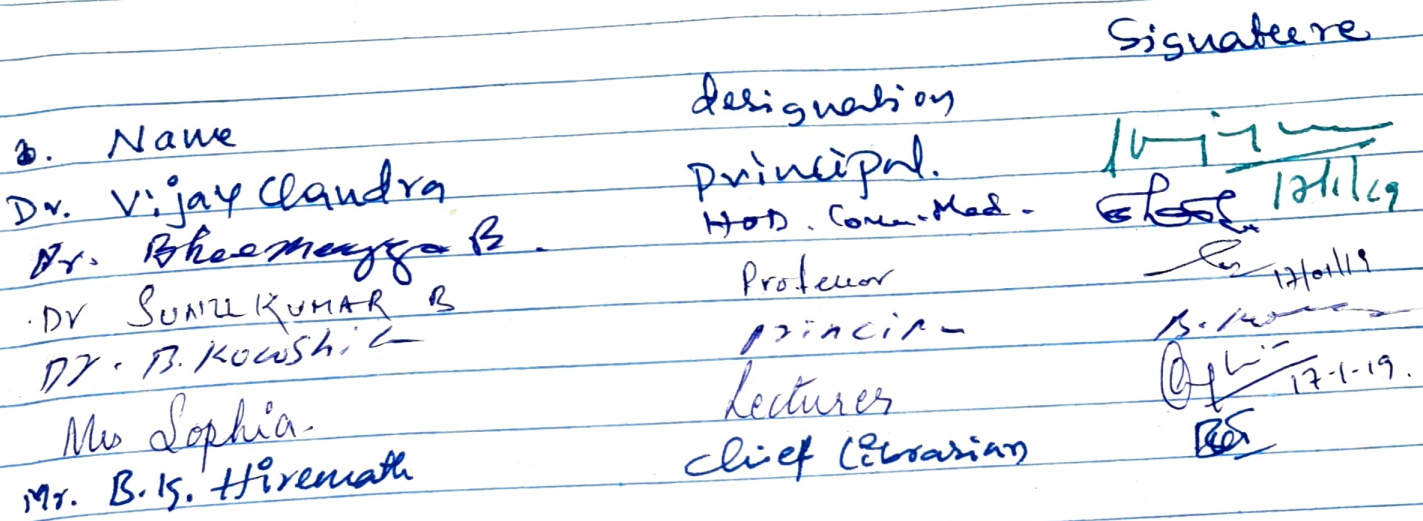 Name designation Signature
Dr. Vijay Chandra Principal. 17/1/19
Dr. Bheemayya B. HOD. Comm. Med.
Dr SUNIL KUMAR B Professor 17/01/19
Dr. B. Kowshik
Ms Sophia. Lecturer 17-1-19.
Mr. B.G. Hiremath Chief Librarian